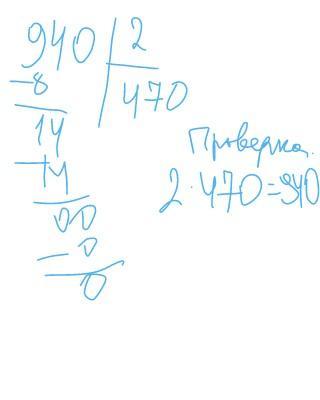 940 | 2
-8 | 470
14
-14
00
- 0
0
Проверка.
2·470=940